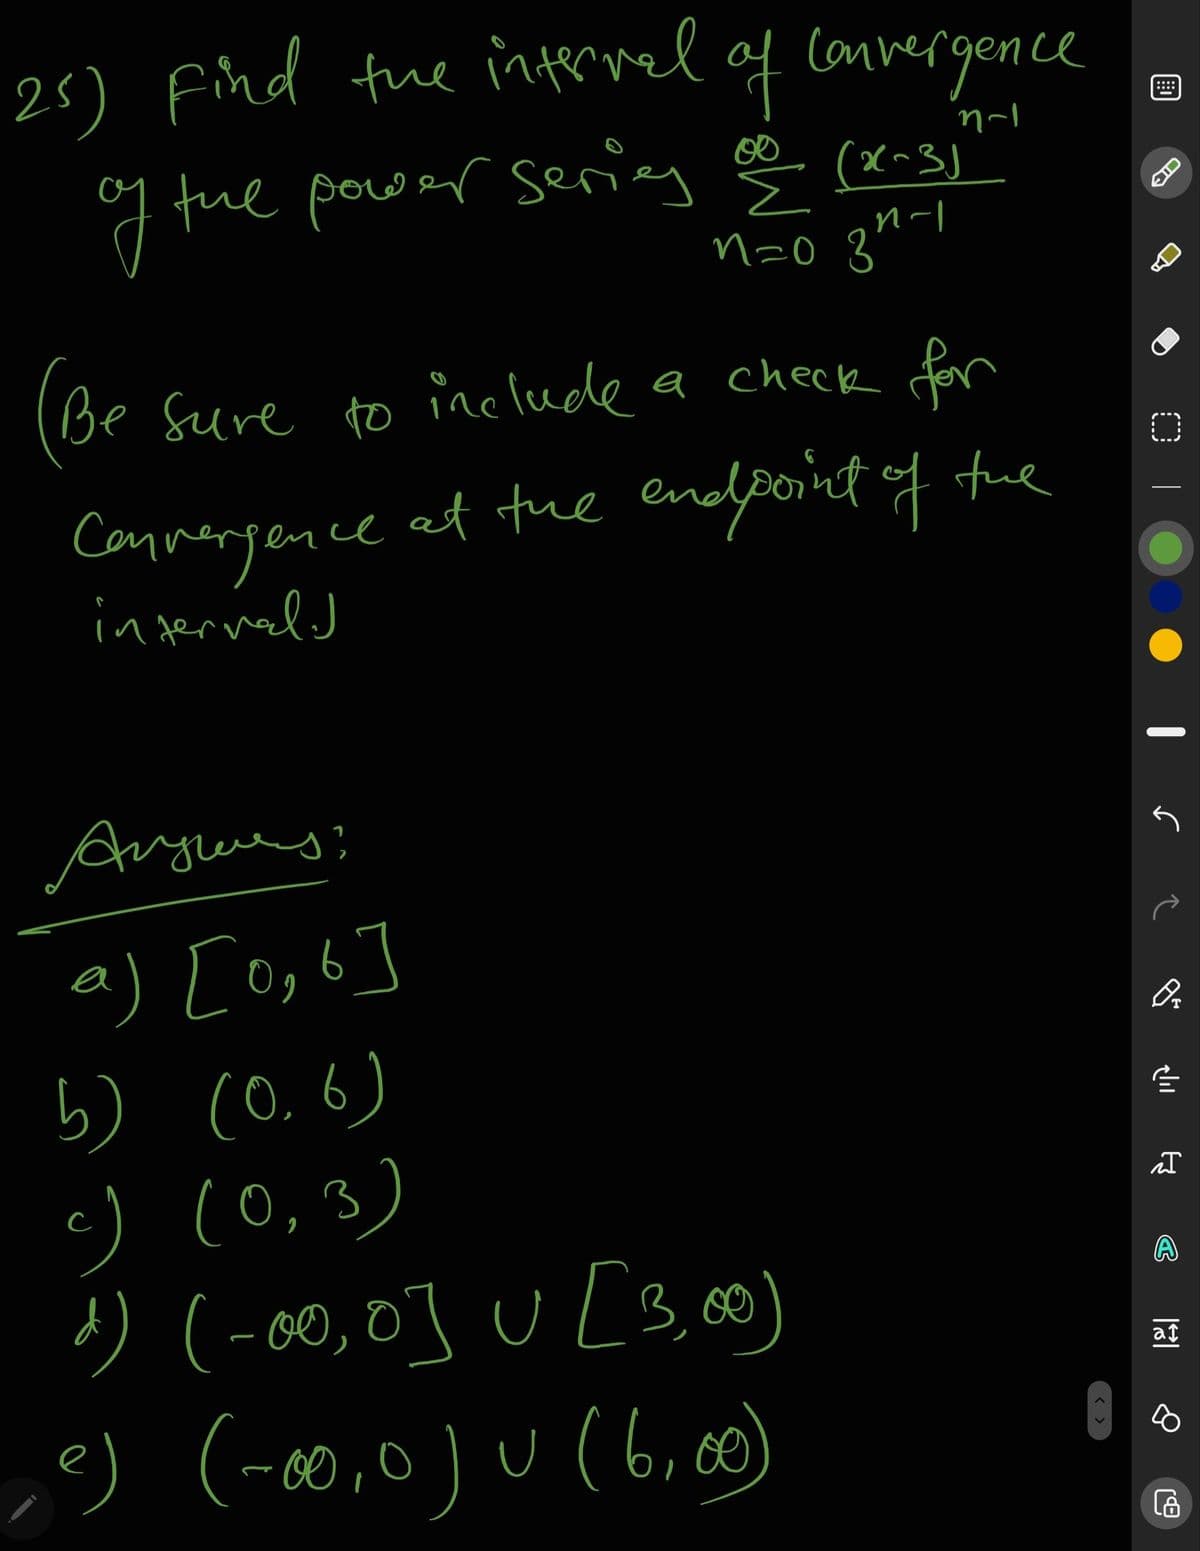 25) Find the interval of convergence
of the power series ∞ Σ n=0 (x-3)^n-1 / 3^n-1
(Be sure to include a check for
Convergence at the endpoint of the
interval.)
Answers:
a) [0,6]
b) (0,6)
c) (0,3)
d) (-∞,0] ∪ [3,∞)
e) (-∞,0) ∪ (6,∞)